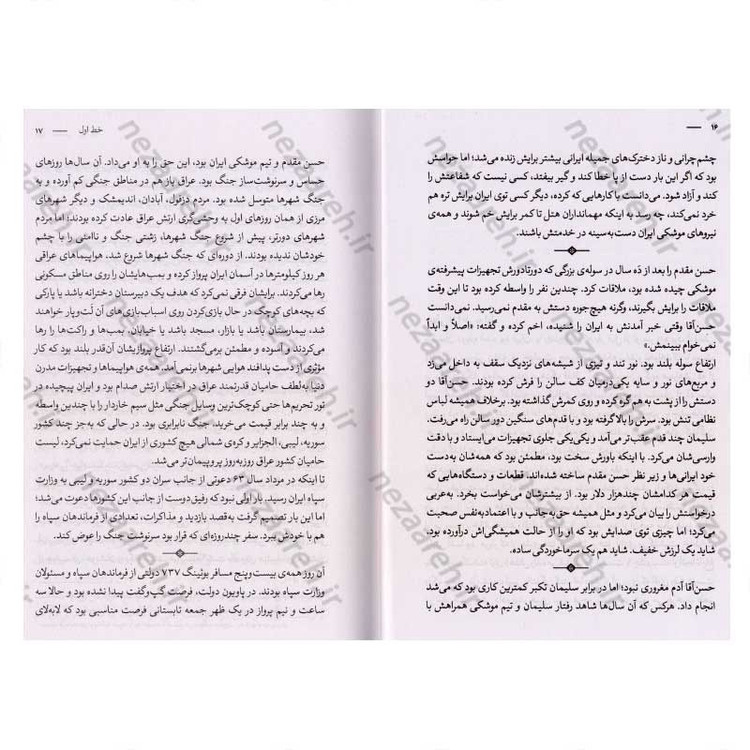 ۱۶
چشم‌چرانی و ناز دخترک‌های جمیله ایرانی بیشتر برایش زنده می‌شد؛ اما حواسش
بود که اگر این بار دست از پا خطا کند و گیر بیفتد، کسی نیست که شفاعتش را
کند و آزاد شود. می‌دانست با کارهایی که کرده، دیگر کسی توی ایران برایش تره هم
خرد نمی‌کند، چه رسد به اینکه مهمانداران هتل تا کمر برایش خم شوند و همه‌ی
نیروهای موشکی ایران دست‌به‌سینه در خدمتش باشند.
حسن مقدم را بعد از ده سال در سوله‌ی بزرگی که دورتادورش تجهیزات پیشرفته‌ی
موشکی چیده شده بود، ملاقات کرد. چندین نفر را واسطه کرده بود تا این وقت
ملاقات را برایش بگیرند، وگرنه هیچ‌جوره دستش به مقدم نمی‌رسید. نمی‌دانست
حسن‌آقا وقتی خبر آمدنش به ایران را شنیده، اخم کرده و گفته: «اصلاً و ابداً
نمی‌خوام ببینمش.»
ارتفاع سوله بلند بود. نور تند و تیزی از شیشه‌های نزدیک سقف به داخل می‌زد
و مربع‌های نور و سایه یکی‌درمیان کف سالن را فرش کرده بودند. حسن‌آقا دو
دستش را از پشت به هم گره کرده و روی کمرش گذاشته بود. برخلاف همیشه لباس
نظامی تنش بود. سرش را بالا گرفته بود و با قدم‌های سنگین دور سالن راه می‌رفت.
سلیمان چند قدم عقب‌تر می‌آمد و یکی‌یکی جلوی تجهیزات می‌ایستاد و با دقت
وارسی‌شان می‌کرد. با اینکه باورش سخت بود، مطمئن بود که همه‌شان به‌دست
خود ایرانی‌ها و زیر نظر حسن مقدم ساخته شده‌اند؛ قطعات و دستگاه‌هایی که
قیمت هر کدامشان چندهزار دلار بود. از بیشترشان می‌خواست بخرد. به‌عربی
درخواستش را بیان می‌کرد و مثل همیشه حق‌به‌جانب و با اعتمادبه‌نفس صحبت
می‌کرد؛ اما چیزی توی صدایش بود که او را از حالت همیشگی‌اش درآورده بود.
شاید یک لرزش خفیف. شاید هم یک سرماخوردگی ساده.
حسن‌آقا آدم مغروری نبود؛ اما در برابر سلیمان تکبر کمترین کاری بود که می‌شد
انجام داد. هرکس که آن سال‌ها شاهد رفتار سلیمان و تیم موشکی همراهش با
خط اول ۱۷
حسن مقدم و تیم موشکی ایران بود، این حق را به او می‌داد. آن سال‌ها روزهای
حساس و سرنوشت‌ساز جنگ بود. عراق باز هم در مناطق جنگی کم آورده و به
جنگ شهرها متوسل شده بود. مردم دزفول، آبادان، اندیمشک و دیگر شهرهای
مرزی از همان روزهای اول به وحشی‌گری ارتش عراق عادت کرده بودند؛ اما مردم
شهرهای دورتر، پیش از شروع جنگ شهرها، زشتی جنگ و ناامنی را با چشم
خودشان ندیده بودند. از دوره‌ای که جنگ شهرها شروع شد، هواپیماهای عراقی
هر روز کیلومترها در آسمان ایران پرواز کرده و بمب‌هایشان را روی مناطق مسکونی
رها می‌کردند. برایشان فرقی نمی‌کرد که هدف یک دبیرستان دخترانه باشد یا پارکی
که بچه‌های کوچک در حال بازی‌کردن روی اسباب‌بازی‌های آن لت‌وپار خواهند
شد، بیمارستان باشد یا بازار، مسجد باشد یا خیابان. بمب‌ها و راکت‌ها را رها
می‌کردند و آسوده و مطمئن برمی‌گشتند. ارتفاع پروازشان آن‌قدر بلند بود که کار
مؤثری از دست پدافند هوایی شهرها برنمی‌آمد. همه‌ی هواپیماها و تجهیزات مدرن
دنیا به‌لطف حامیان قدرتمند عراق در اختیار ارتش صدام بود و ایران پیچیده در
تور تحریم‌ها حتی کوچک‌ترین وسایل جنگی مثل سیم خاردار را با چندین واسطه
و به چند برابر قیمت می‌خرید. جنگ نابرابری بود. در حالی که به‌جز چند کشور
سوریه، لیبی، الجزایر و کره‌ی شمالی هیچ کشوری از ایران حمایت نمی‌کرد، لیست
حامیان کشور عراق روزبه‌روز پروپیمان‌تر می‌شد.
تا اینکه در مرداد سال ۶۳ دعوتی از جانب سران دو کشور سوریه و لیبی به وزارت
سپاه ایران رسید. بار اولی نبود که رفیق‌دوست از جانب این کشورها دعوت می‌شد؛
اما این بار تصمیم گرفت به‌قصد بازدید و مذاکرات، تعدادی از فرماندهان سپاه را
هم با خودش ببرد. سفر چندروزه‌ای که قرار بود سرنوشت جنگ را عوض کند.
آن روز همه‌ی بیست‌وپنج مسافر بوئینگ ۷۳۷ دولتی از فرماندهان سپاه و مسئولان
وزارت سپاه بودند. در پاویون دولت، فرصت گپ‌وگفت پیدا نشده بود و حالا سه
ساعت و نیم پرواز در یک ظهر جمعه تابستانی فرصت مناسبی بود که لابه‌لای
nezaareh.ir